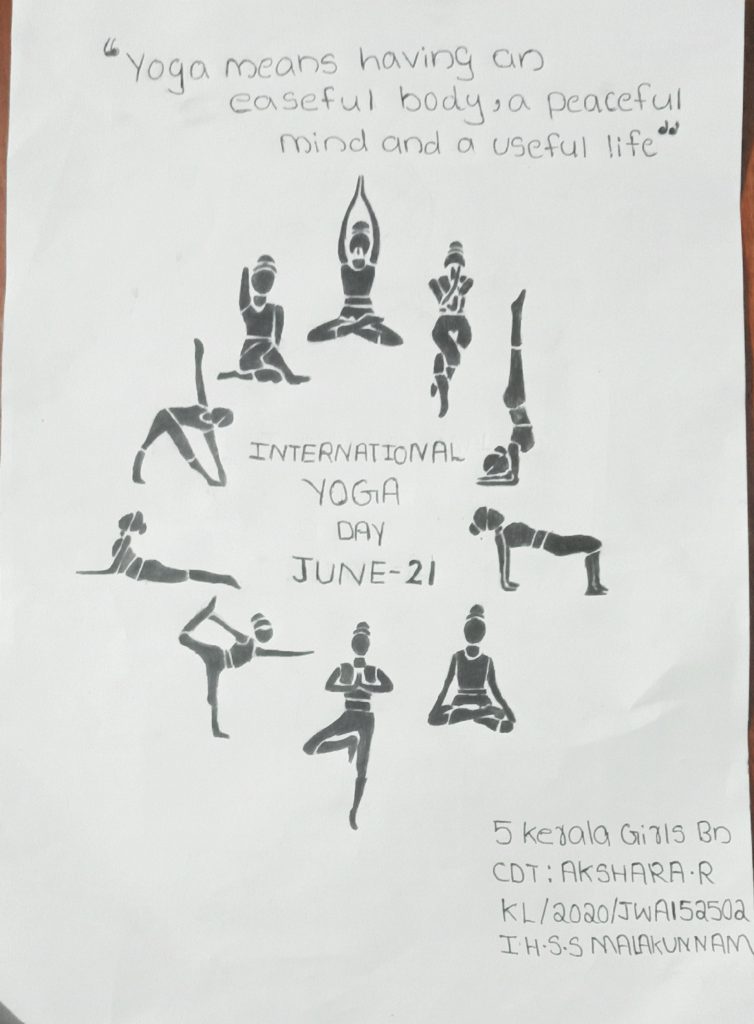 “Yoga means having an
easeful body, a peaceful
mind and a useful life”
INTERNATIONAL
YOGA
DAY
JUNE-21
5 Kerala Girls Bn
CDT: AKSHARA.R
KL/2020/JWA152502
I.H.S.S MALAKUNNAM